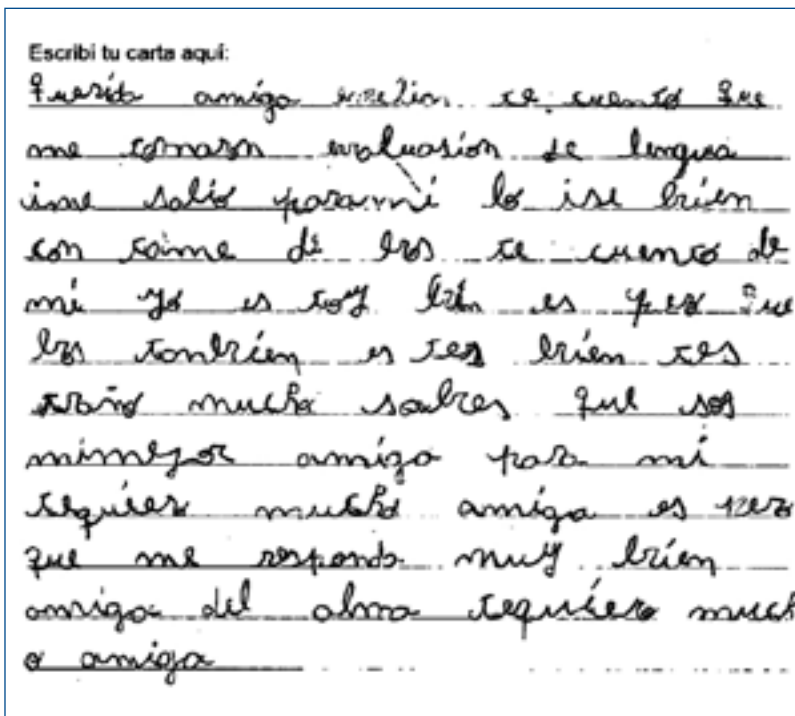 Escribí tu carta aquí:
querida amiga te cuento que
me tomaron evaluasión de lengua
ime salió para mí lo ise bien
con taime de bos te cuento de
mí yo es toy bién es pero que
bos tanbíen es tes bíen tes
traño mucho sabes que sos
mimejor amiga para mí
tequiero mucho amiga es pero
que me responda muy bíen
amiga del alma tequiero much
o amiga